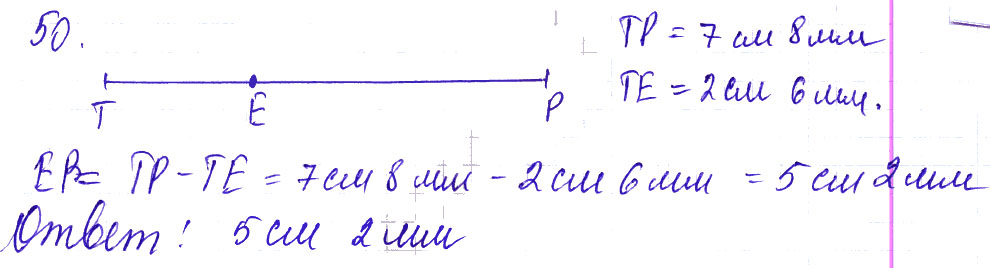 50.
TP = 7 см 8 мм
TE = 2 см 6 мм.
T E P
EP = TP - TE = 7 см 8 мм - 2 см 6 мм = 5 см 2 мм
Ответ: 5 см 2 мм